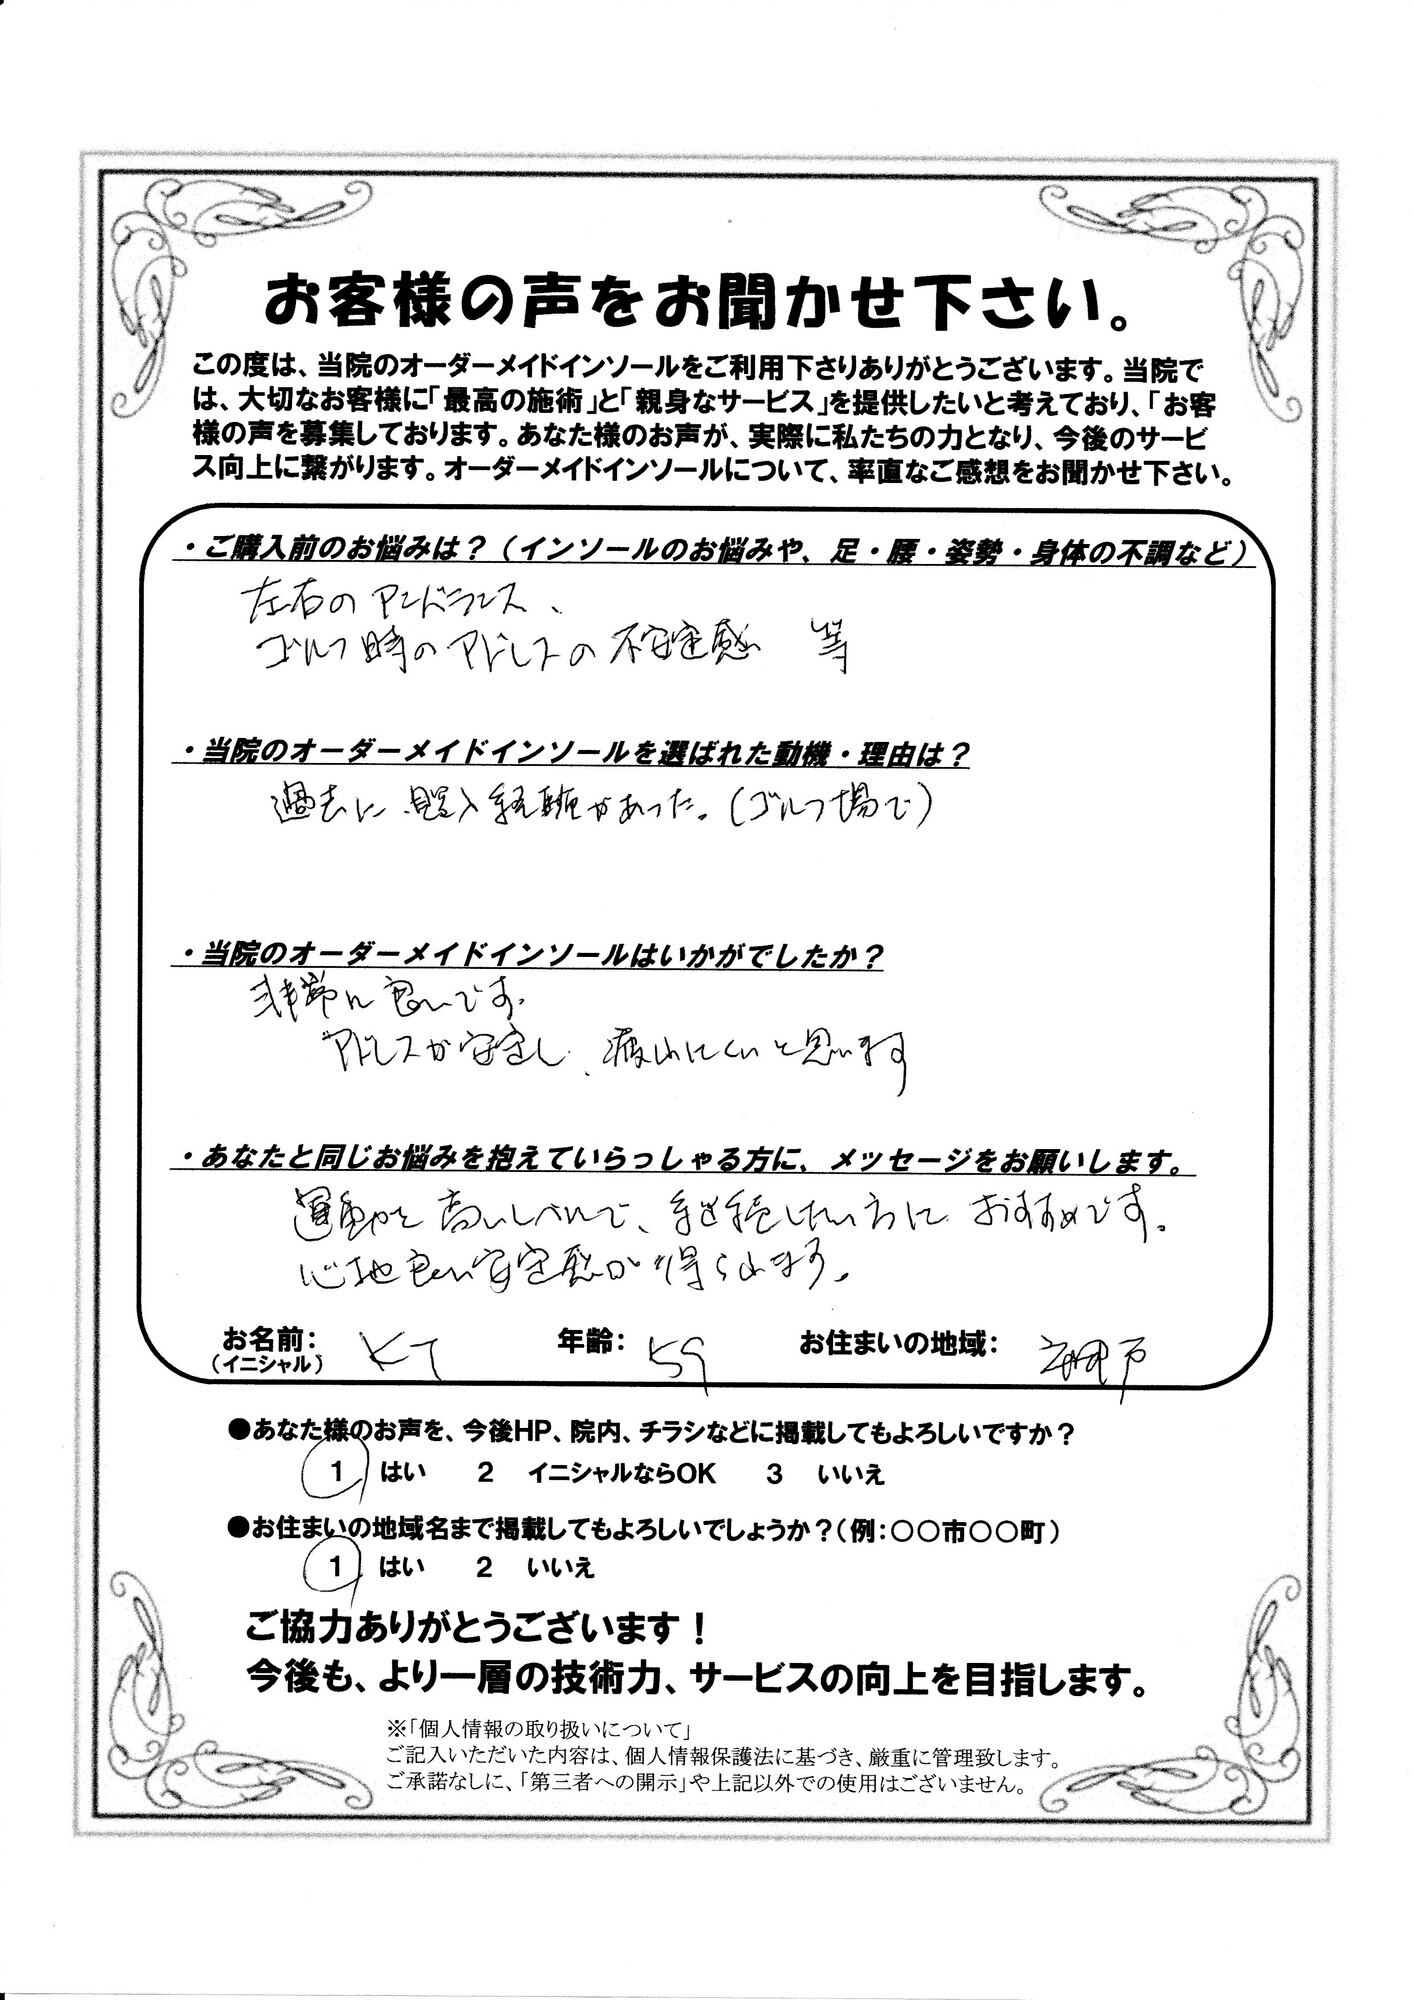 お客様の声をお聞かせ下さい。
この度は、当院のオーダーメイドインソールをご利用下さりありがとうございます。当院で
は、大切なお客様に「最高の施術」と「親身なサービス」を提供したいと考えており、「お客
様の声を募集しております。あなた様のお声が、実際に私たちの力となり、今後のサービ
ス向上に繋がります。オーダーメイドインソールについて、率直なご感想をお聞かせ下さい。
・ご購入前のお悩みは？（インソールのお悩みや、足・腰・姿勢・身体の不調など）
左右のアンバランス、
ゴルフ時のアドレスの不安定感 等
・当院のオーダーメイドインソールを選ばれた動機・理由は？
過去に購入経験があった。(ゴルフ場で)
・当院のオーダーメイドインソールはいかがでしたか？
非常に良いです。
アドレスが安定し、疲れにくいと思います
・あなたと同じお悩みを抱えていらっしゃる方に、メッセージをお願いします。
運動を高いレベルで、継続したい方におすすめです。
心地良い安定感が得られます。
お名前： KT 年齢： 59 お住まいの地域：
（イニシャル）
●あなた様のお声を、今後HP、院内、チラシなどに掲載してもよろしいですか？
1 はい 2 イニシャルならOK 3 いいえ
●お住まいの地域名まで掲載してもよろしいでしょうか？（例：○○市○○町）
1 はい 2 いいえ
ご協力ありがとうございます！
今後も、より一層の技術力、サービスの向上を目指します。
※「個人情報の取り扱いについて」
ご記入いただいた内容は、個人情報保護法に基づき、厳重に管理致します。
ご承諾なしに、「第三者への開示」や上記以外での使用はございません。